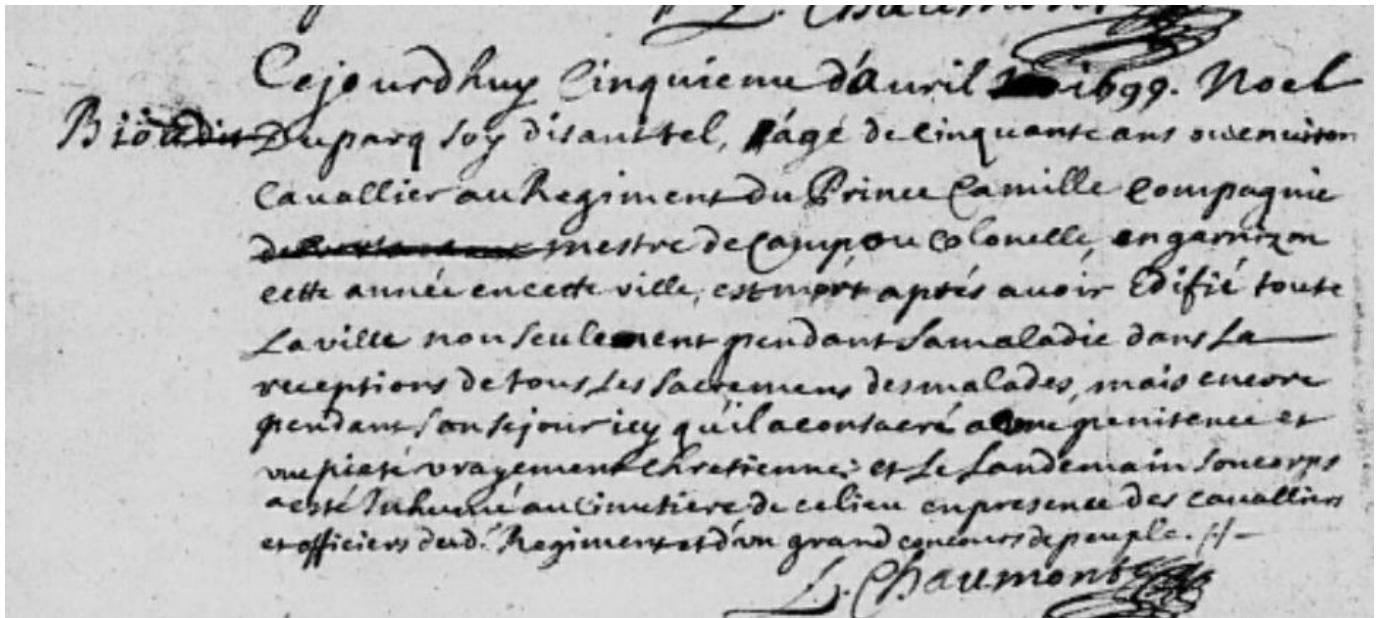 L. Chaumont
Cejourdhuy Cinquieme d'Auril 1699. Noel
Bio dit Duparq soy disant tel, âgé de cinquante ans ou enuiron
Cauallier au Regiment du Prince Camille Compagnie
de mestre de Camp, ou Colonelle, en garnizon
cette année en cette ville, est mort aprés auoir Edifié toute
La ville non seulement pendant sa maladie dans La
receptions de tous Les sacremens des malades, mais encore
pendant son sejour icy qu'il a consacré a vne penitence et
vne pieté vrayement Chretienne; et Le Landemain son corps
a esté Inhumé au Cimetiere de ce lieu en presence des caualliers
et officiers dud. Regiment et d'vn grand concours de peuple. //-
L. Chaumont